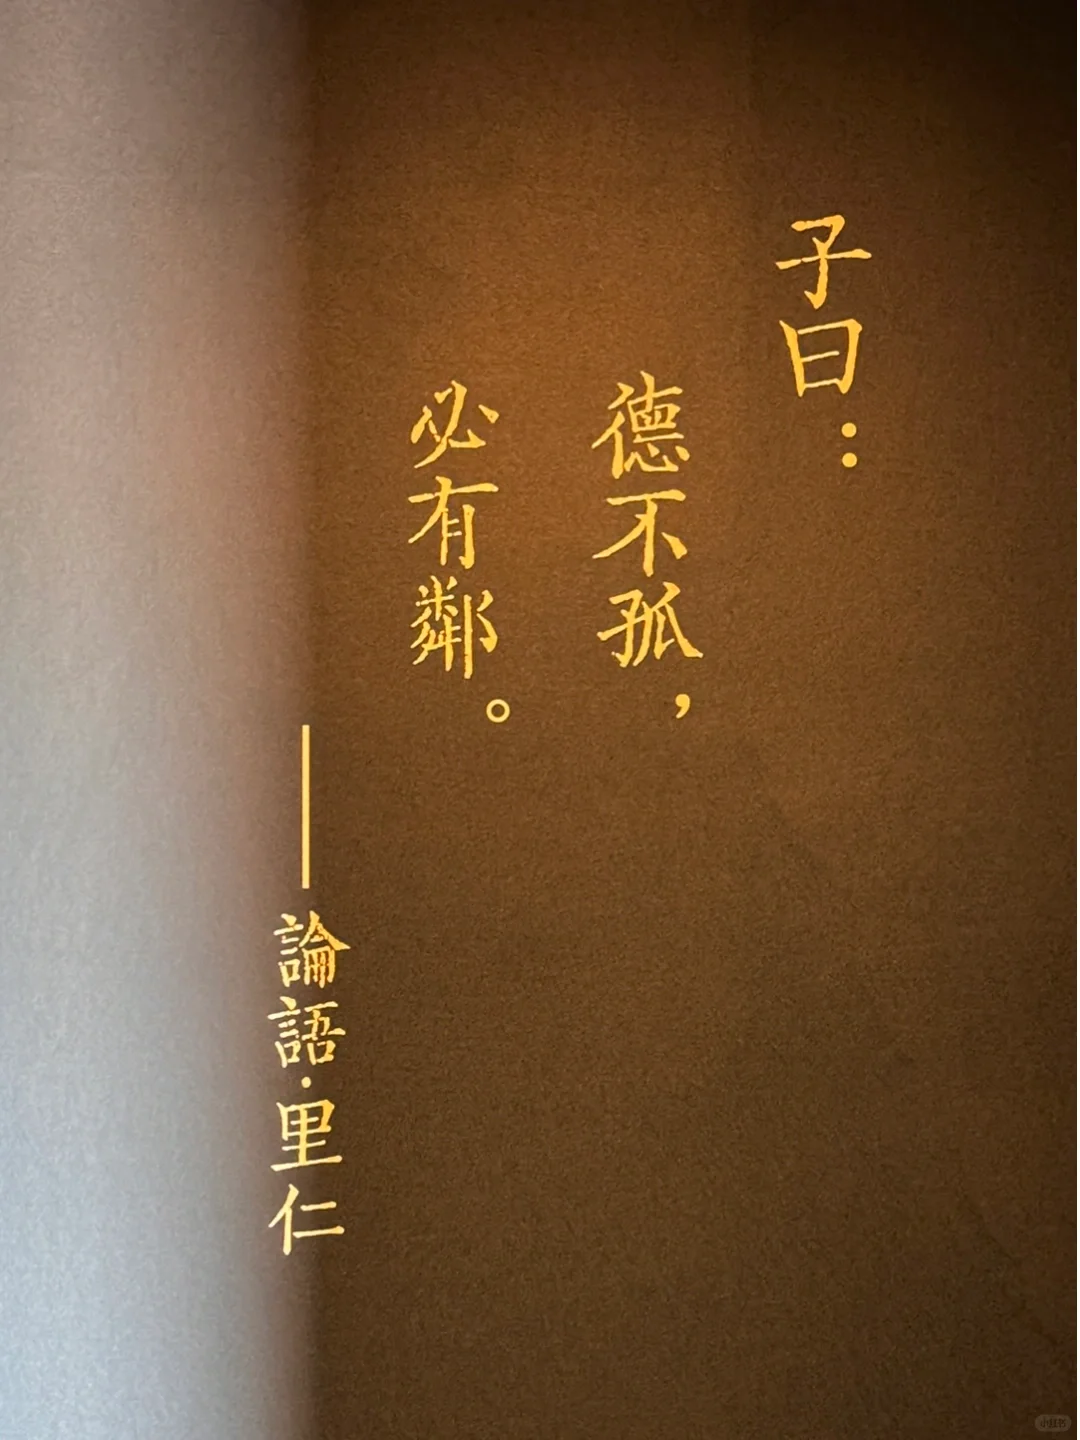 子曰：
德不孤，
必有鄰。
——論語·里仁
小红书